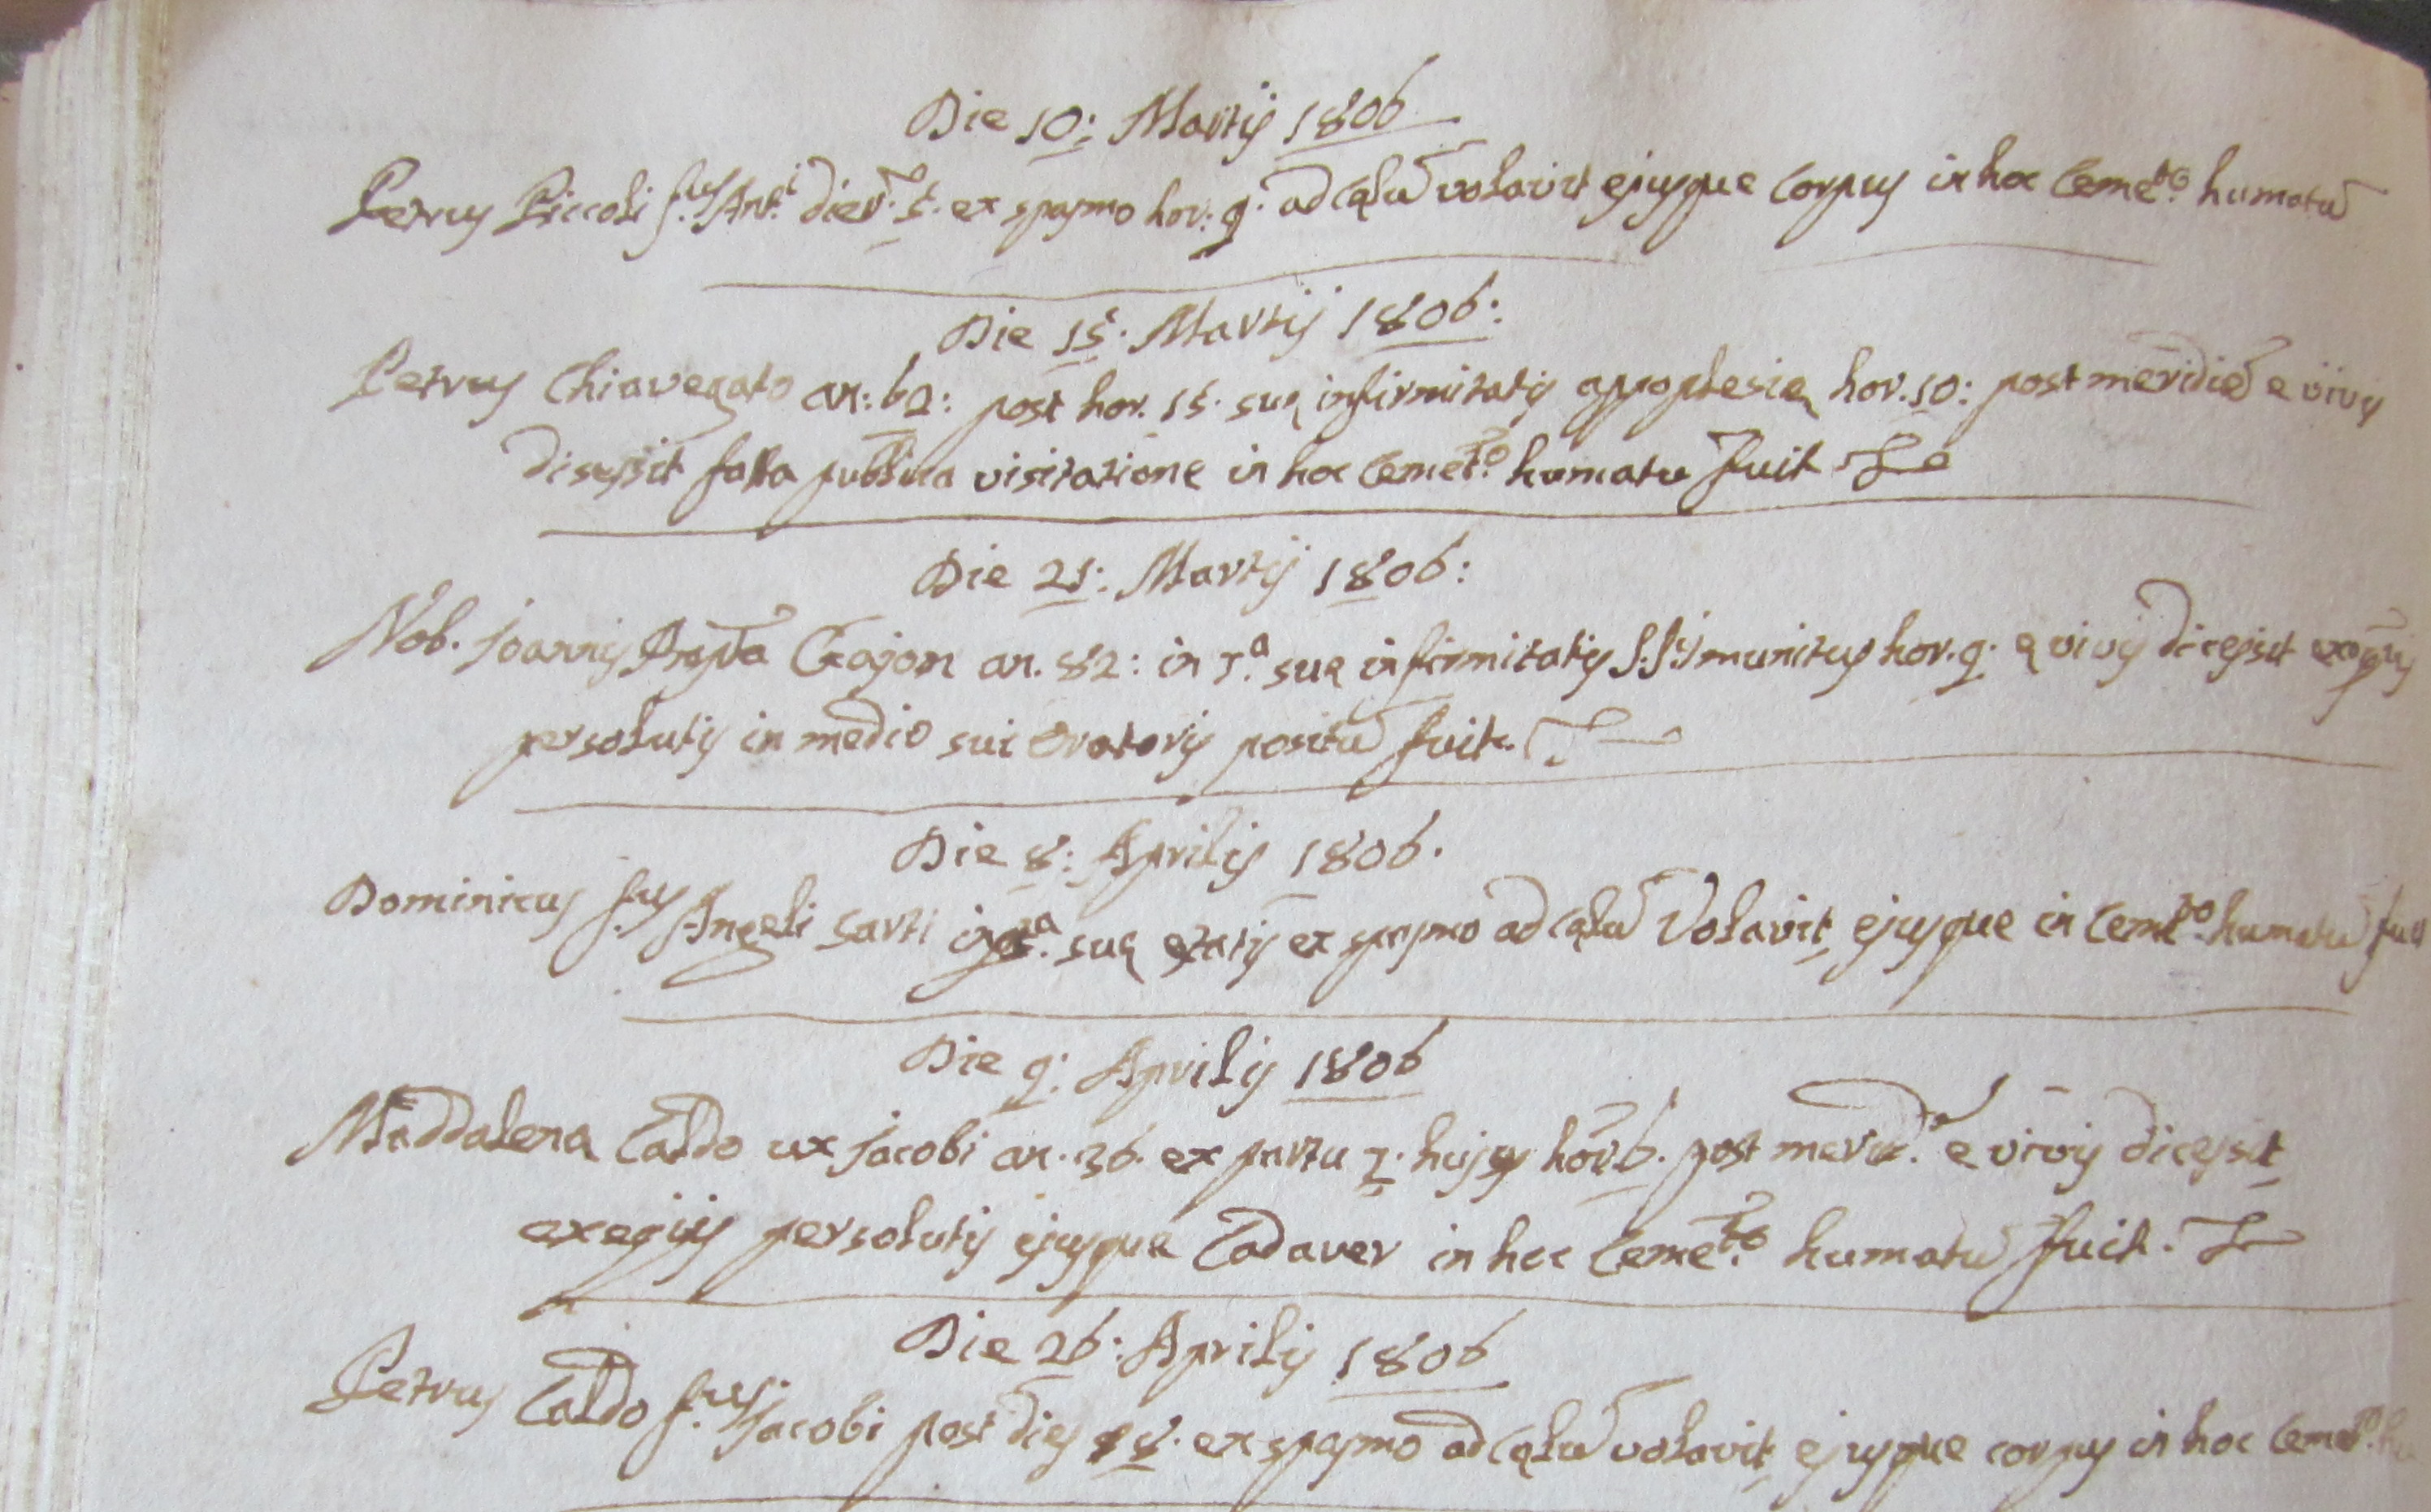 Die 10: Martij 1806
Petrus Piccoli f.us Ant.i dier. 5. ex spasmo hor: 9. ad cęlū volavit ejusque Corpus in hoc Cemet.o humatū
Die 15. Martij 1806:
Petrus Chiavegato an: 62: post hor. 15. suę infirmitatis appoplesię hor. 10: post meridiē e vivis
dicessit facta publica visitatione in hoc Cemet.o humatu fuit
Die 21: Martij 1806:
Nob. Joannis Bapta an. 82: in suę infirmitatis munitus hor. 9. ę vivis dicessit
persolutis in medio sui Oratorij positū fuit.
Die 8: Aprilis 1806.
Dominicus f.us Angeli Sarti suę ętatis ex spasmo ad cęlū Volavit, ejusque in Cemt.o humatū
Die 9: Aprilis 1806
Maddalena Caldo ux Jacobi an. 36. ex partu hujus hor. 6. post merid. e vivis dicessit
exeqijs persolutis ejusque Cadaver in hoc Cemet.o humatū fuit.
Die 26: Aprilis 1806
Petrus Caldo f.us Jacobi post dies 18. ex spasmo ad cęlū volavit, ejusque corpus in hoc Cemet.o